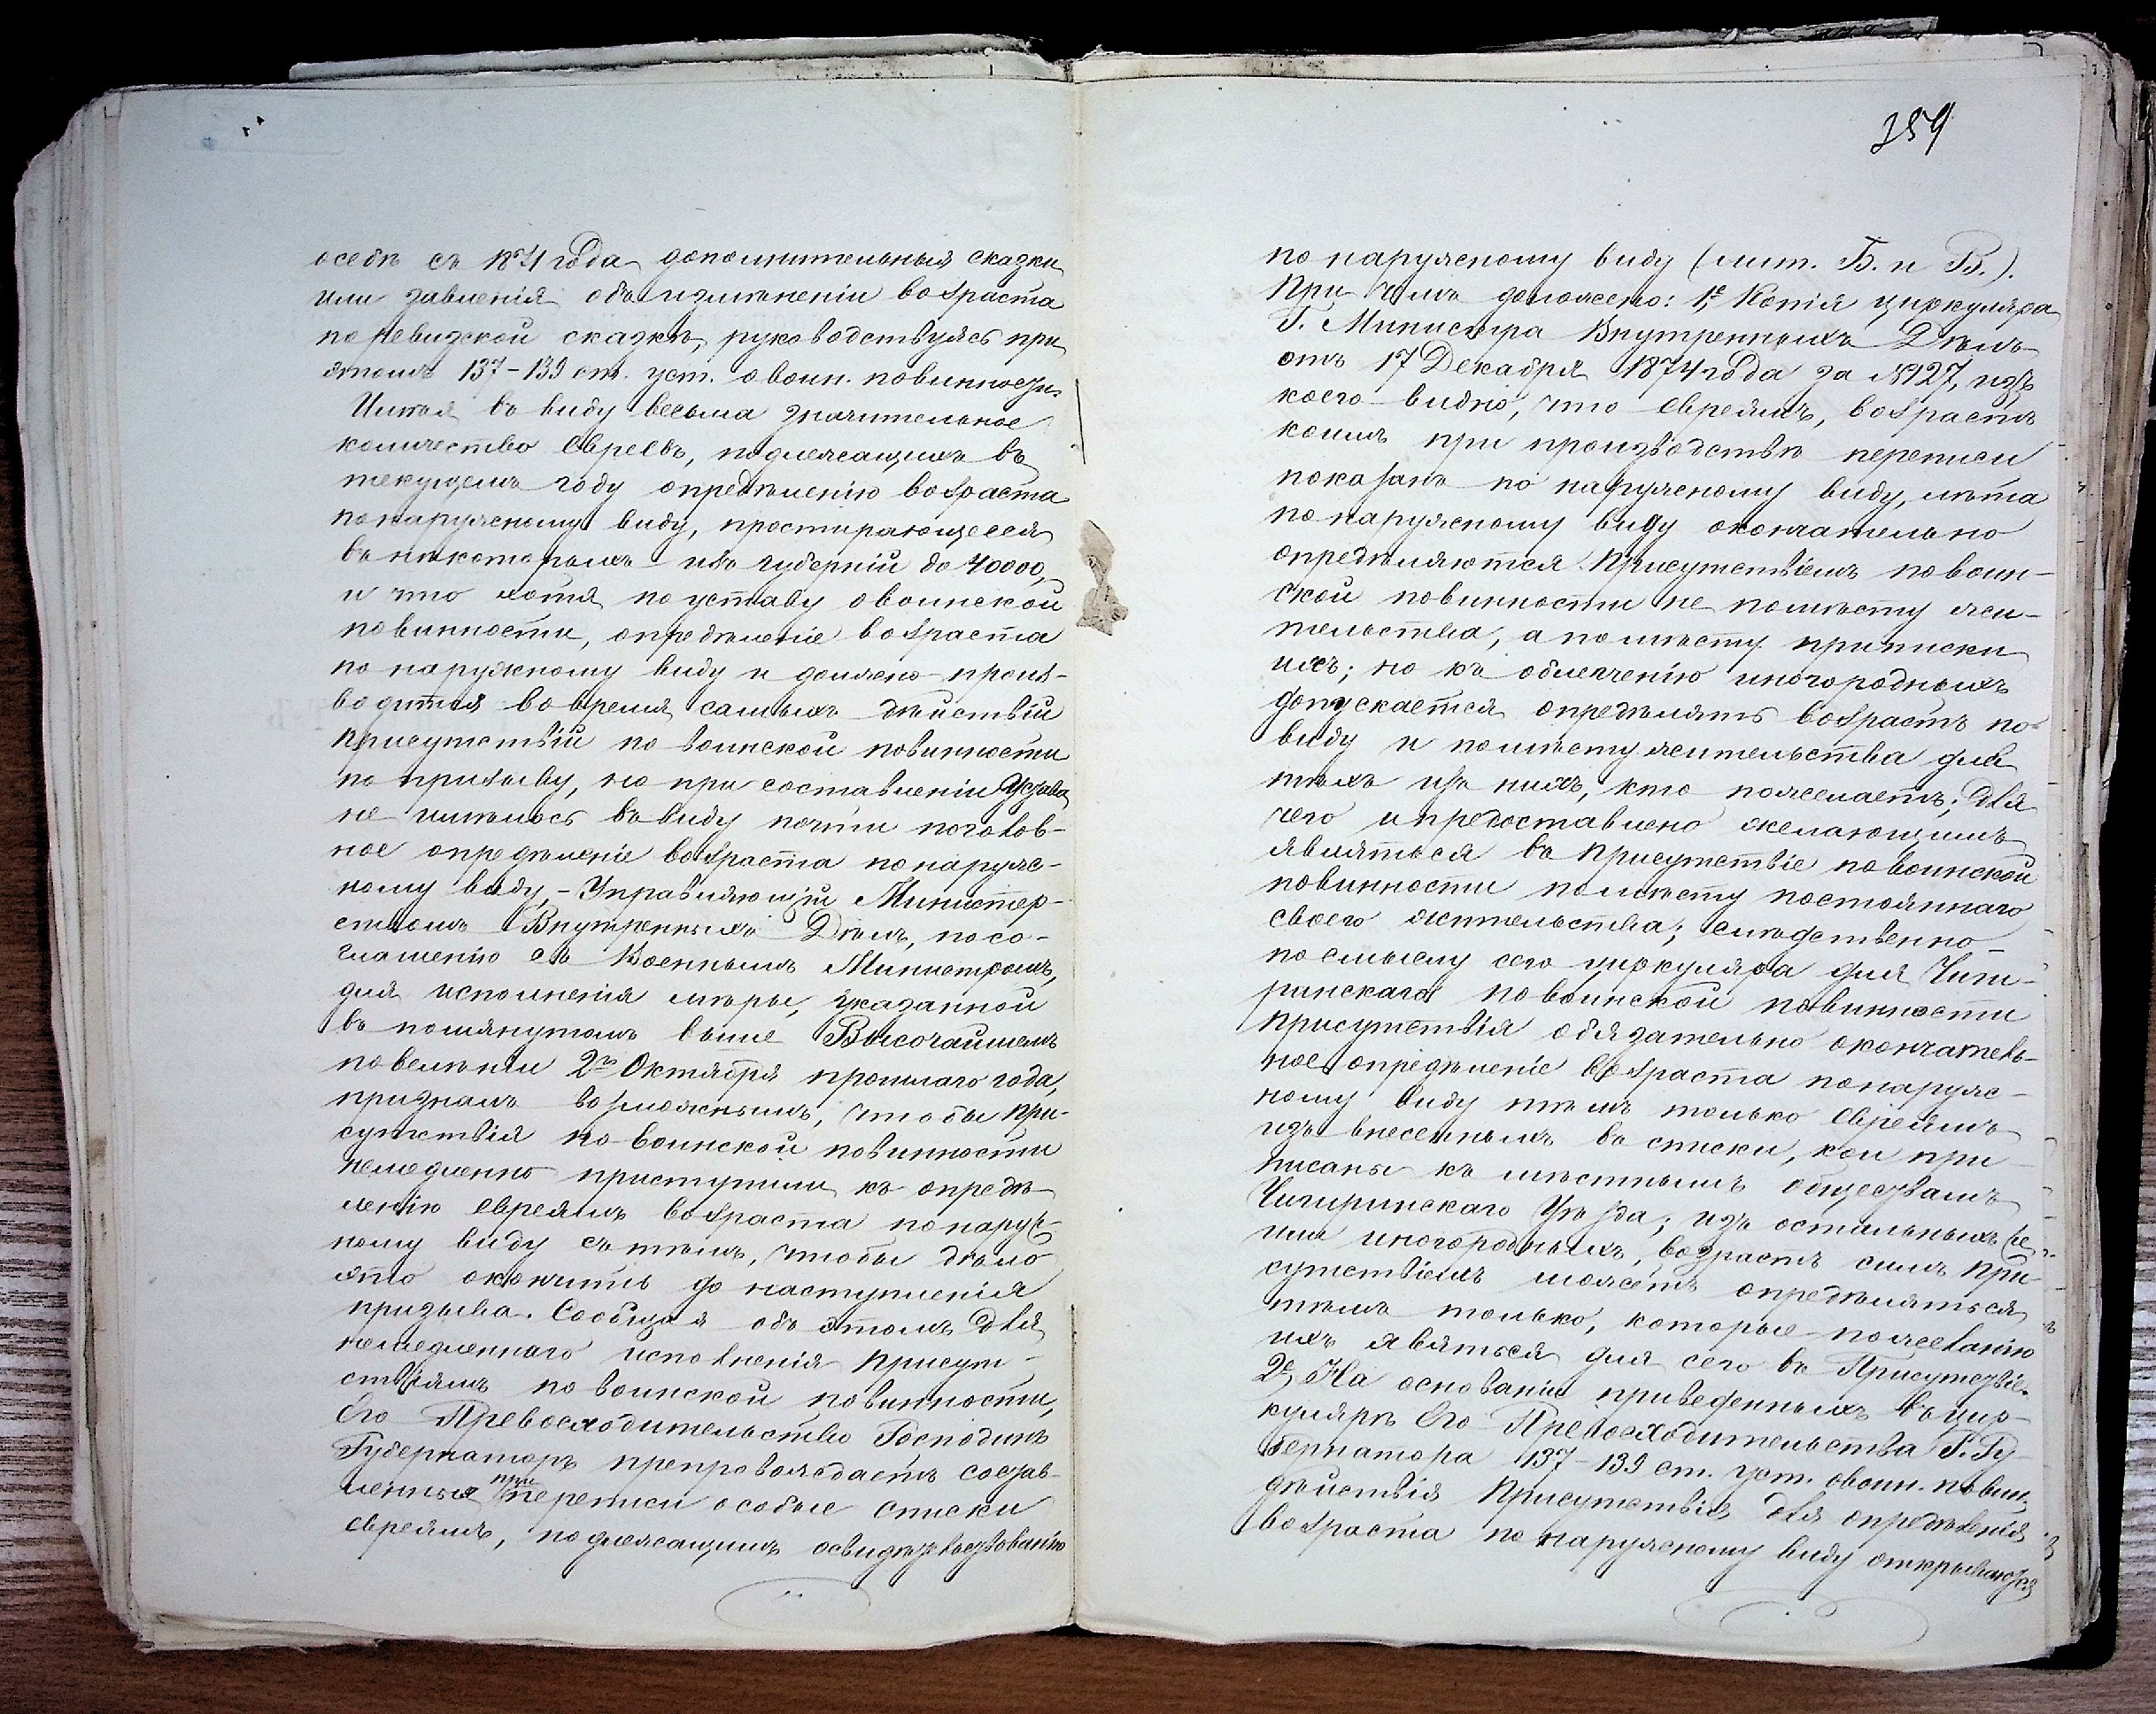 особѣ съ 1874 года дополнительныя сказки
или заявленія объ измѣненіи возраста
по ревизской сказкѣ, руководствуясь при
этомъ 137-139 ст. уст. о воин. повинности.
Имѣя въ виду весьма значительное
количество Евреевъ, подлежащихъ въ
текущемъ году опредѣленію возраста
по наружному виду, простирающееся
въ нѣкоторыхъ изъ губерній до 40000,
и что хотя по уставу о воинской
повинности, опредѣленіе возраста
по наружному виду и должно произ-
водится во время самыхъ дѣйствій
Присутствій по воинской повинности
по призыву, но при составленіи Устава
не имѣлось въ виду почти поголов-
ное опредѣленіе возраста по наруж-
ному виду, - Управляющій Министер-
ствомъ Внутреннихъ Дѣлъ, по со-
глашенію съ Военнымъ Министромъ,
для исполненія мѣры, указанной
въ помянутомъ выше Высочайшемъ
повелѣніи 2го Октября прошлаго года,
призналъ возможнымъ, чтобы При-
сутствія по воинской повинности
немедленно приступили къ опредѣ-
ленію евреямъ возраста по наруж-
ному виду съ тѣмъ, чтобы дѣло
это окончить до наступленія
призыва. Сообщая объ этомъ для
немедленнаго исполненія Присут-
ствіямъ по воинской повинности,
Его Превосходительство Господинъ
Губернаторъ препровождаетъ состав-
ленныя при переписи особые списки
евреямъ, подлежащимъ освидѣтельствованію
359
по наружному виду (лит. Б. и В.).
При чемъ доложено: 1е, Копія циркуляра
Г. Министра Внутреннихъ Дѣлъ
отъ 17 Декабря 1874 года за №127, изъ
коего видно, что евреямъ, возрастъ
коимъ при производствѣ переписи
показанъ по наружному виду, лѣта
по наружному виду окончательно
опредѣляются Присутствіемъ по воин-
ской повинности не по мѣсту жи-
тельства, а по мѣсту приписки
ихъ; но къ облегченію иногородныхъ
допускается опредѣлять возрастъ по
виду и по мѣсту жительства для
тѣхъ изъ нихъ, кто пожелаетъ; для
чего и предоставлено желающимъ
являться въ Присутствіе по воинской
повинности по мѣсту постояннаго
своего жительства; слѣдственно
по смыслу сего циркуляра для Чиги-
ринскаго по воинской повинности
Присутствія обязательно окончатель-
ное опредѣленіе возраста по наруж-
ному виду тѣмъ только Евреямъ
изъ внесенныхъ въ списки, кои при
писаны къ мѣстнымъ обществамъ
Чигиринскаго Уѣзда; изъ остальныхъ же
или иногородныхъ, возрастъ симъ При-
сутствіемъ можетъ опредѣляться
тѣмъ только, которые по желанію
ихъ явятся для сего въ Присутствіе.
2е, На основаніи приведенныхъ въ цир-
кулярѣ Его Превосходительства Г. Гу-
бернатора 137-139 ст. уст. о воин. повин.
дѣйствія Присутствія для опредѣленія
возраста по наружному виду открываются